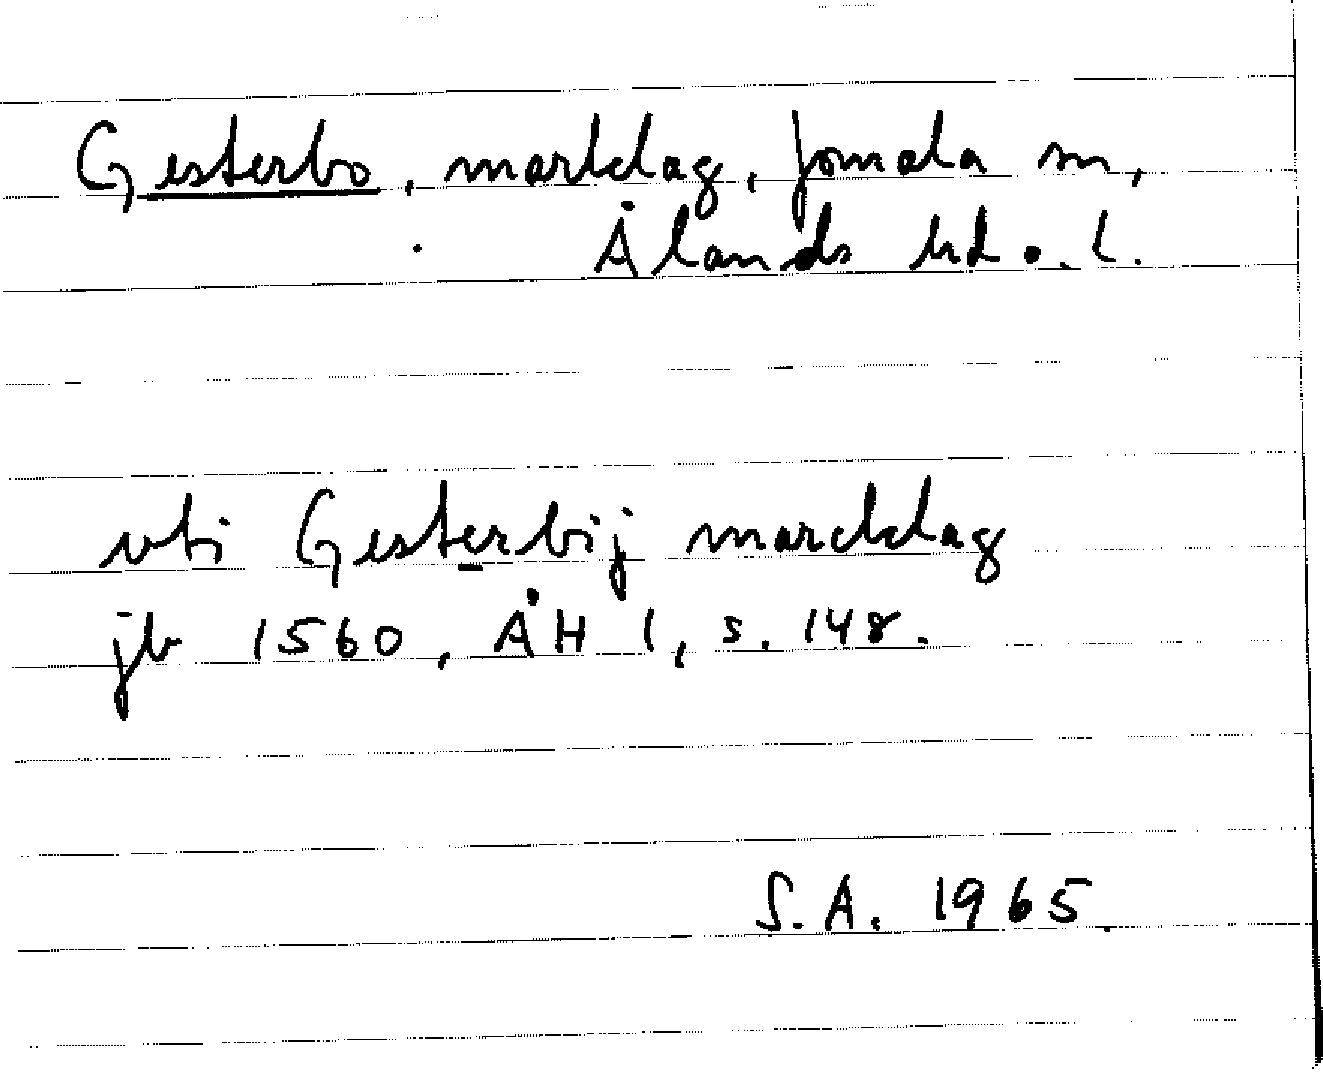 Gesterbo, marklag, Jomala sn,
Ålands hd o. l.
vti Gesterbij marcklag
jb 1560, ÅH 1, s. 148.
S.A. 1965.